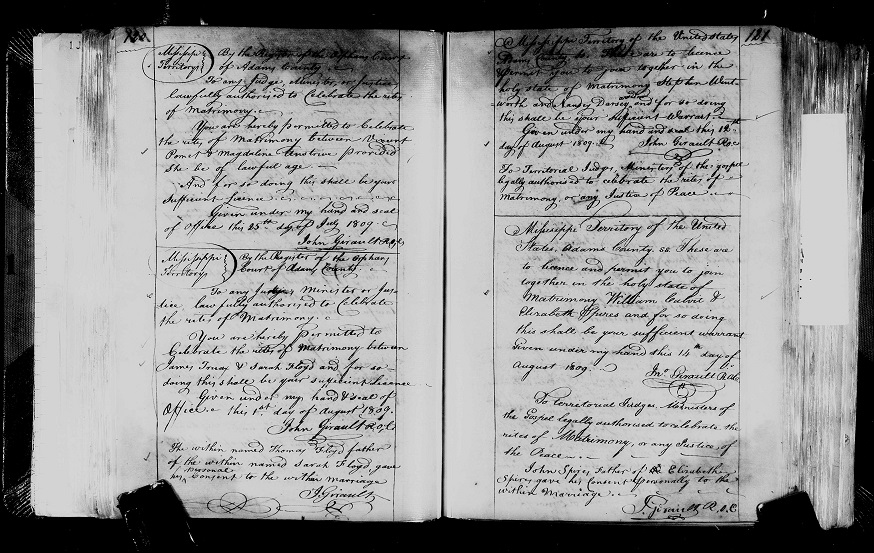 Mississippi Territory } By the Register of the Orphans Court
of Adams County
To any Judge, Minister, or Justice
lawfully authorised to Celebrate the rites
of Matrimony.
You are hereby permitted to Celebrate
the rites of Matrimony between
Ponet & Magdaline provided
She be of lawful age
And for so doing this shall be your
Sufficient licence
Given under my hand and seal
of Office this 25th day of July 1809.
John Girault R.O.C.
Mississippi Territory } By the Register of the Orphans
Court of Adams County
To any Minister or Jus-
tice lawfully authorised to Celebrate
the rites of Matrimony.
You are hereby permitted to
Celebrate the rites of Matrimony between
James & Sarah Floyd and for so
doing this shall be your sufficient licence
Given under my hand & seal of
Office this 1st day of August 1809.
John Girault R.O.C.
The within named Thomas Floyd father
of the within named Sarah Floyd gave
his personal Consent to the within marriage
J. Girault
181
Mississippi Territory of the United States
Adams County ss. These are to licence
& permit you to join together in the
holy state of Matrimony Stephen Went-
worth and Dorsey, and for so doing
this shall be your sufficient Warrant
Given under my hand and seal this 12th
day of August 1809.
John Girault R.O.C.
To Territorial Judges, Ministers of the gospel
legally authorised to celebrate the rites of
Matrimony, or any Justice of Peace
Mississippi Territory of the United
States, Adams County. ss. These are
to licence and permit you to join
together in the holy state of
Matrimony William &
Elizabeth Spires and for so doing
this shall be your sufficient warrant
Given under my hand this 14th day of
August 1809.
Jno. Girault R.O.C.
To territorial Judges, Ministers of
the Gospel legally authorised to celebrate the
rites of Matrimony, or any Justice of
the Peace
John Spires Father of the Elizabeth
Spires gave his Consent personally to the
within Marriage
J. Girault R.O.C.